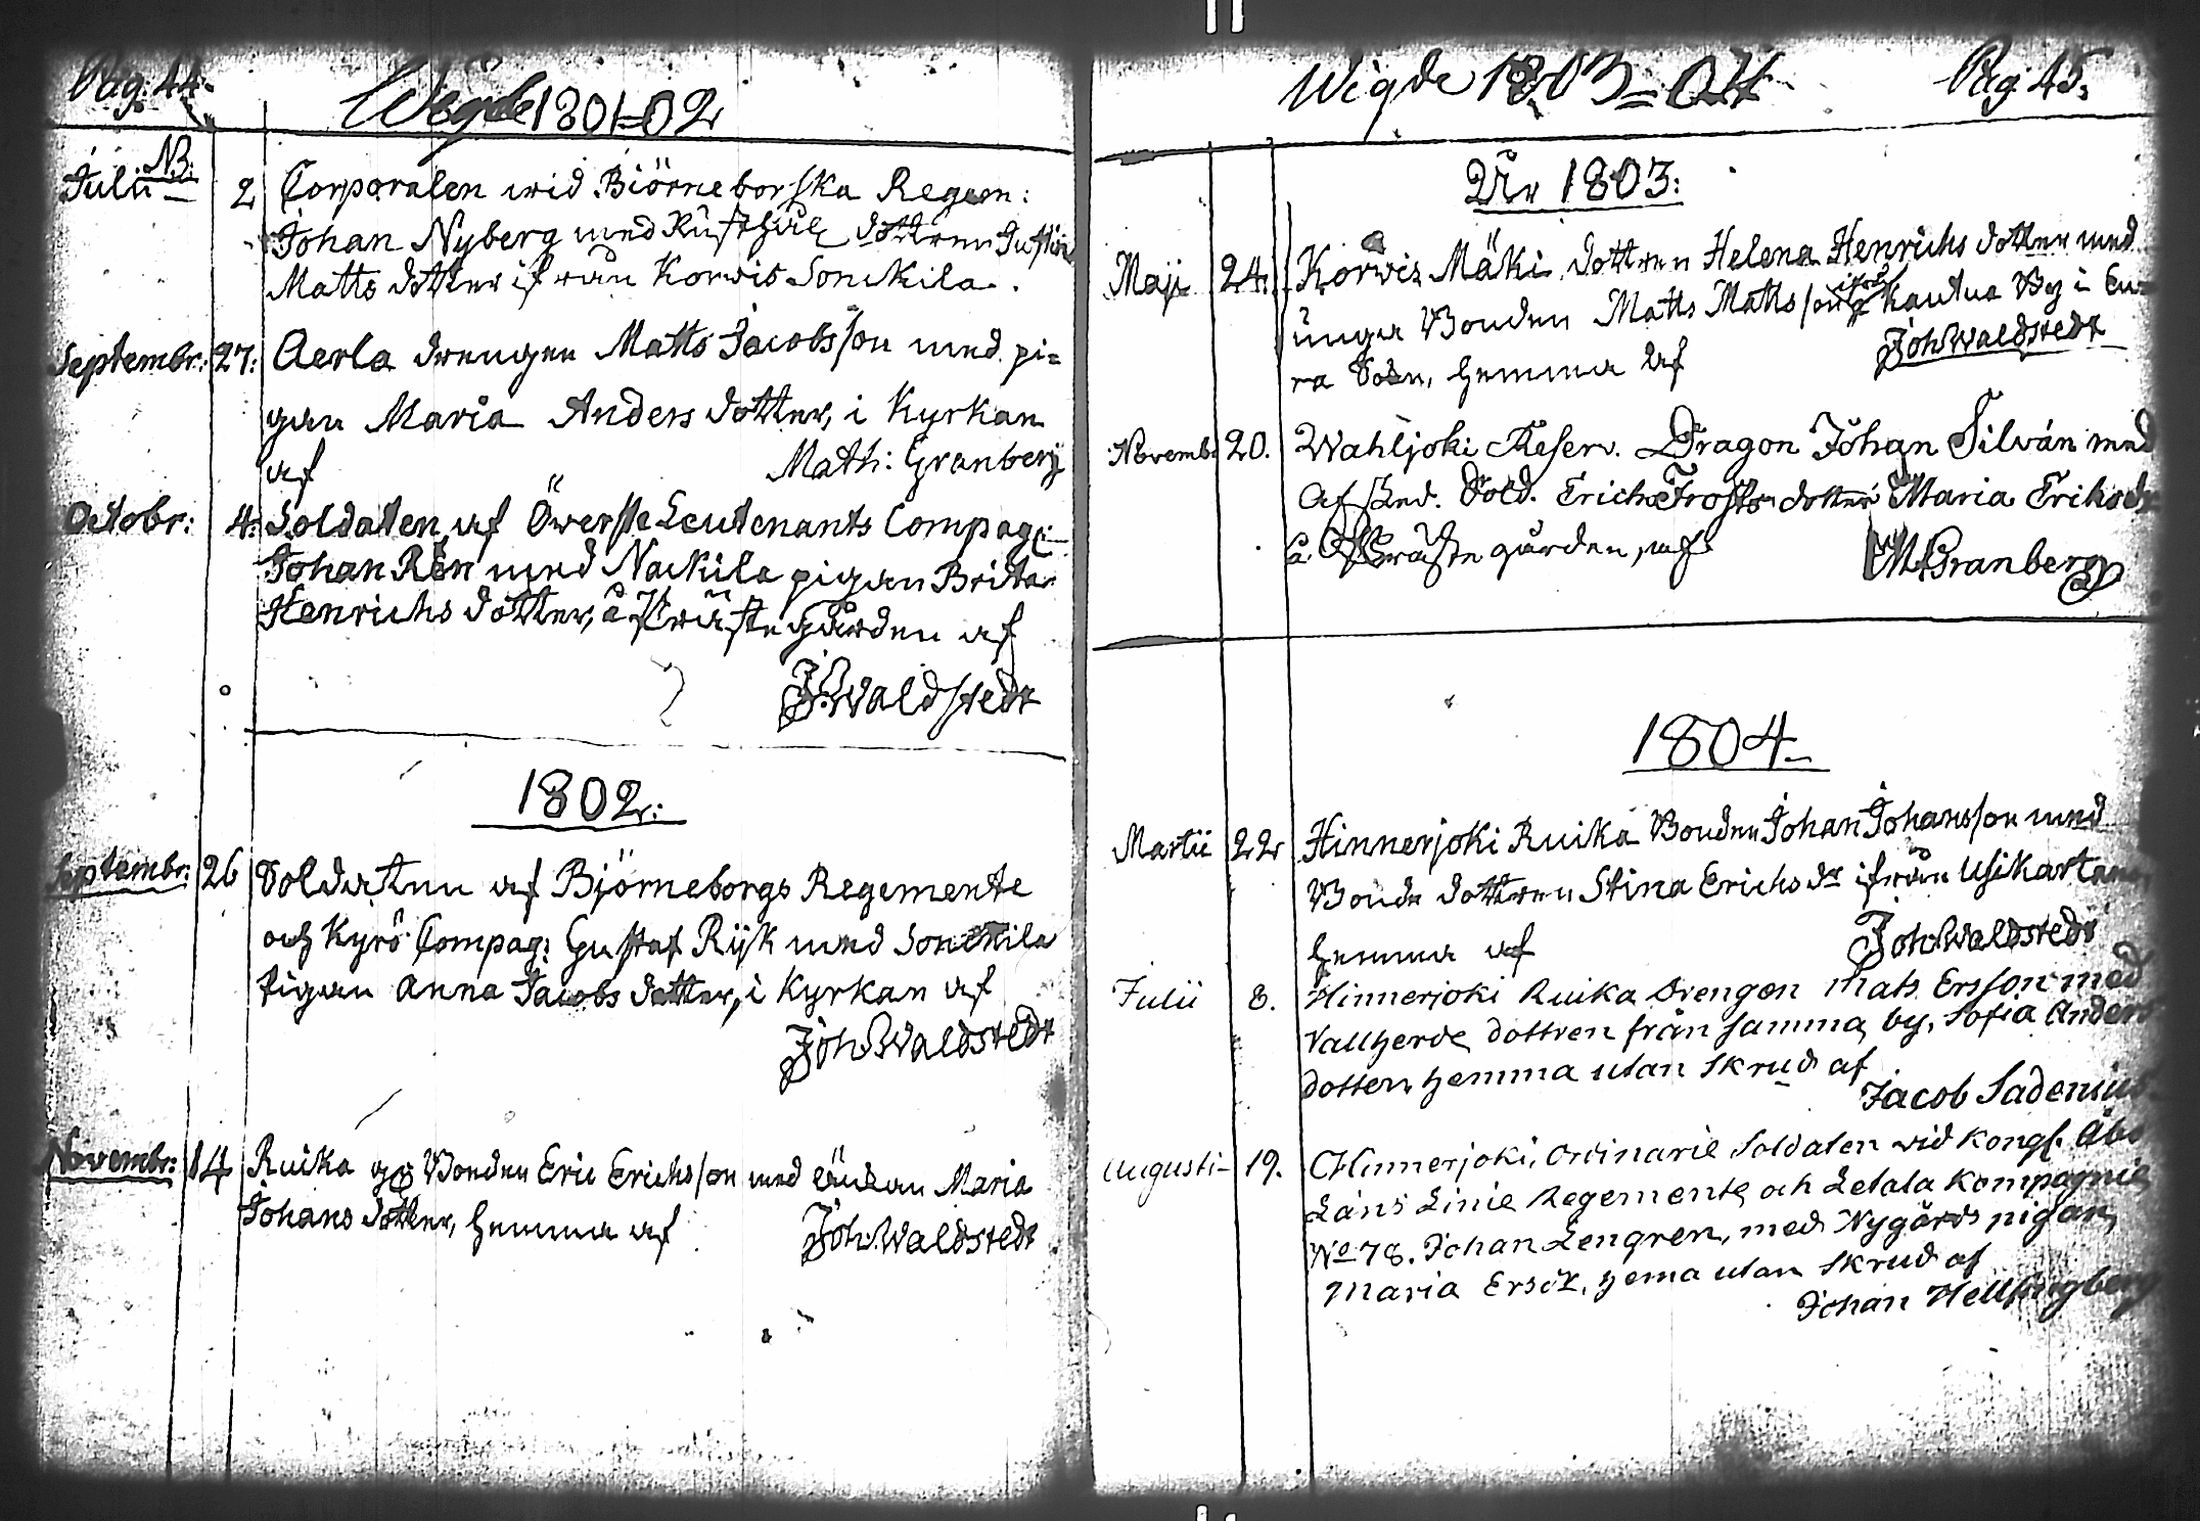 Pag: 44.
Wigde 1801=02
NB:
Julii 2 Corporalen wid Biörneborska Regem:
Johan Nyberg med Rusthål dottren Justina
Matts dotter ifrån Korwis Sonckila.
Septembr: 27: Aerla drengen Matts Jacobsson med pi=
gan Maria Anders dotter, i Kyrkan
af Math: Granberg
Octobr: 4: Soldaten af Öwerste Leutenants Compag:
Johan Rén med Nackila pigan Brita
Henrichs dotter, å Prästegården af
J. Waldstedt
1802:
Septembr: 26 Soldaten af Björneborgs Regemente
och Kyrö Compag: Gustaf Rijk med Sonckila
Pigan Anna Jacobs dotter, i Kyrkan af
Joh: Waldstedt
Novembr: 14 Ruika Bonden Eric Erichsson med änkan Maria
Johans dotter, hemma af Joh: Waldstedt
Wigde 1803=04 Pag 45.
År 1803:
Maji 24. Korwis Mäki dottren Helena Henrichs dotter med
unga Bonden Matts Mattsson ifrån Kautua By i Eu=
ra Sokn, hemma af Joh: Waldstedt
Novemb: 20. Wahljoki Reserv. Dragon Johan Silván med
Afsked. Sold. Erich Frosts dotter Maria Erichsdr
å Prästegården, af M. Granberg
1804
Martii 22 Hinnerjoki Ruika Bonden Johan Johansson med
Bonde dottren Stina Erichs dr ifrån Usikartano
hemma af Joh: Waldstedt
Julii 8. Hinnerjoki Ruika Drengen Mats Ersson med
Vallherde dottren från samma by, Sofia Anders
dotter, hemma utan skrud af
Jacob Sadenius
Augusti 19. Hinnerjoki, Ordinarie Soldaten vid Kongl. Åbo
Läns Linie Regemente och Letala Kompagnie
No 78. Johan Lengren, med Nygårds pigan,
Maria Ersdr, hema utan skrud af
Johan Hellsingberg